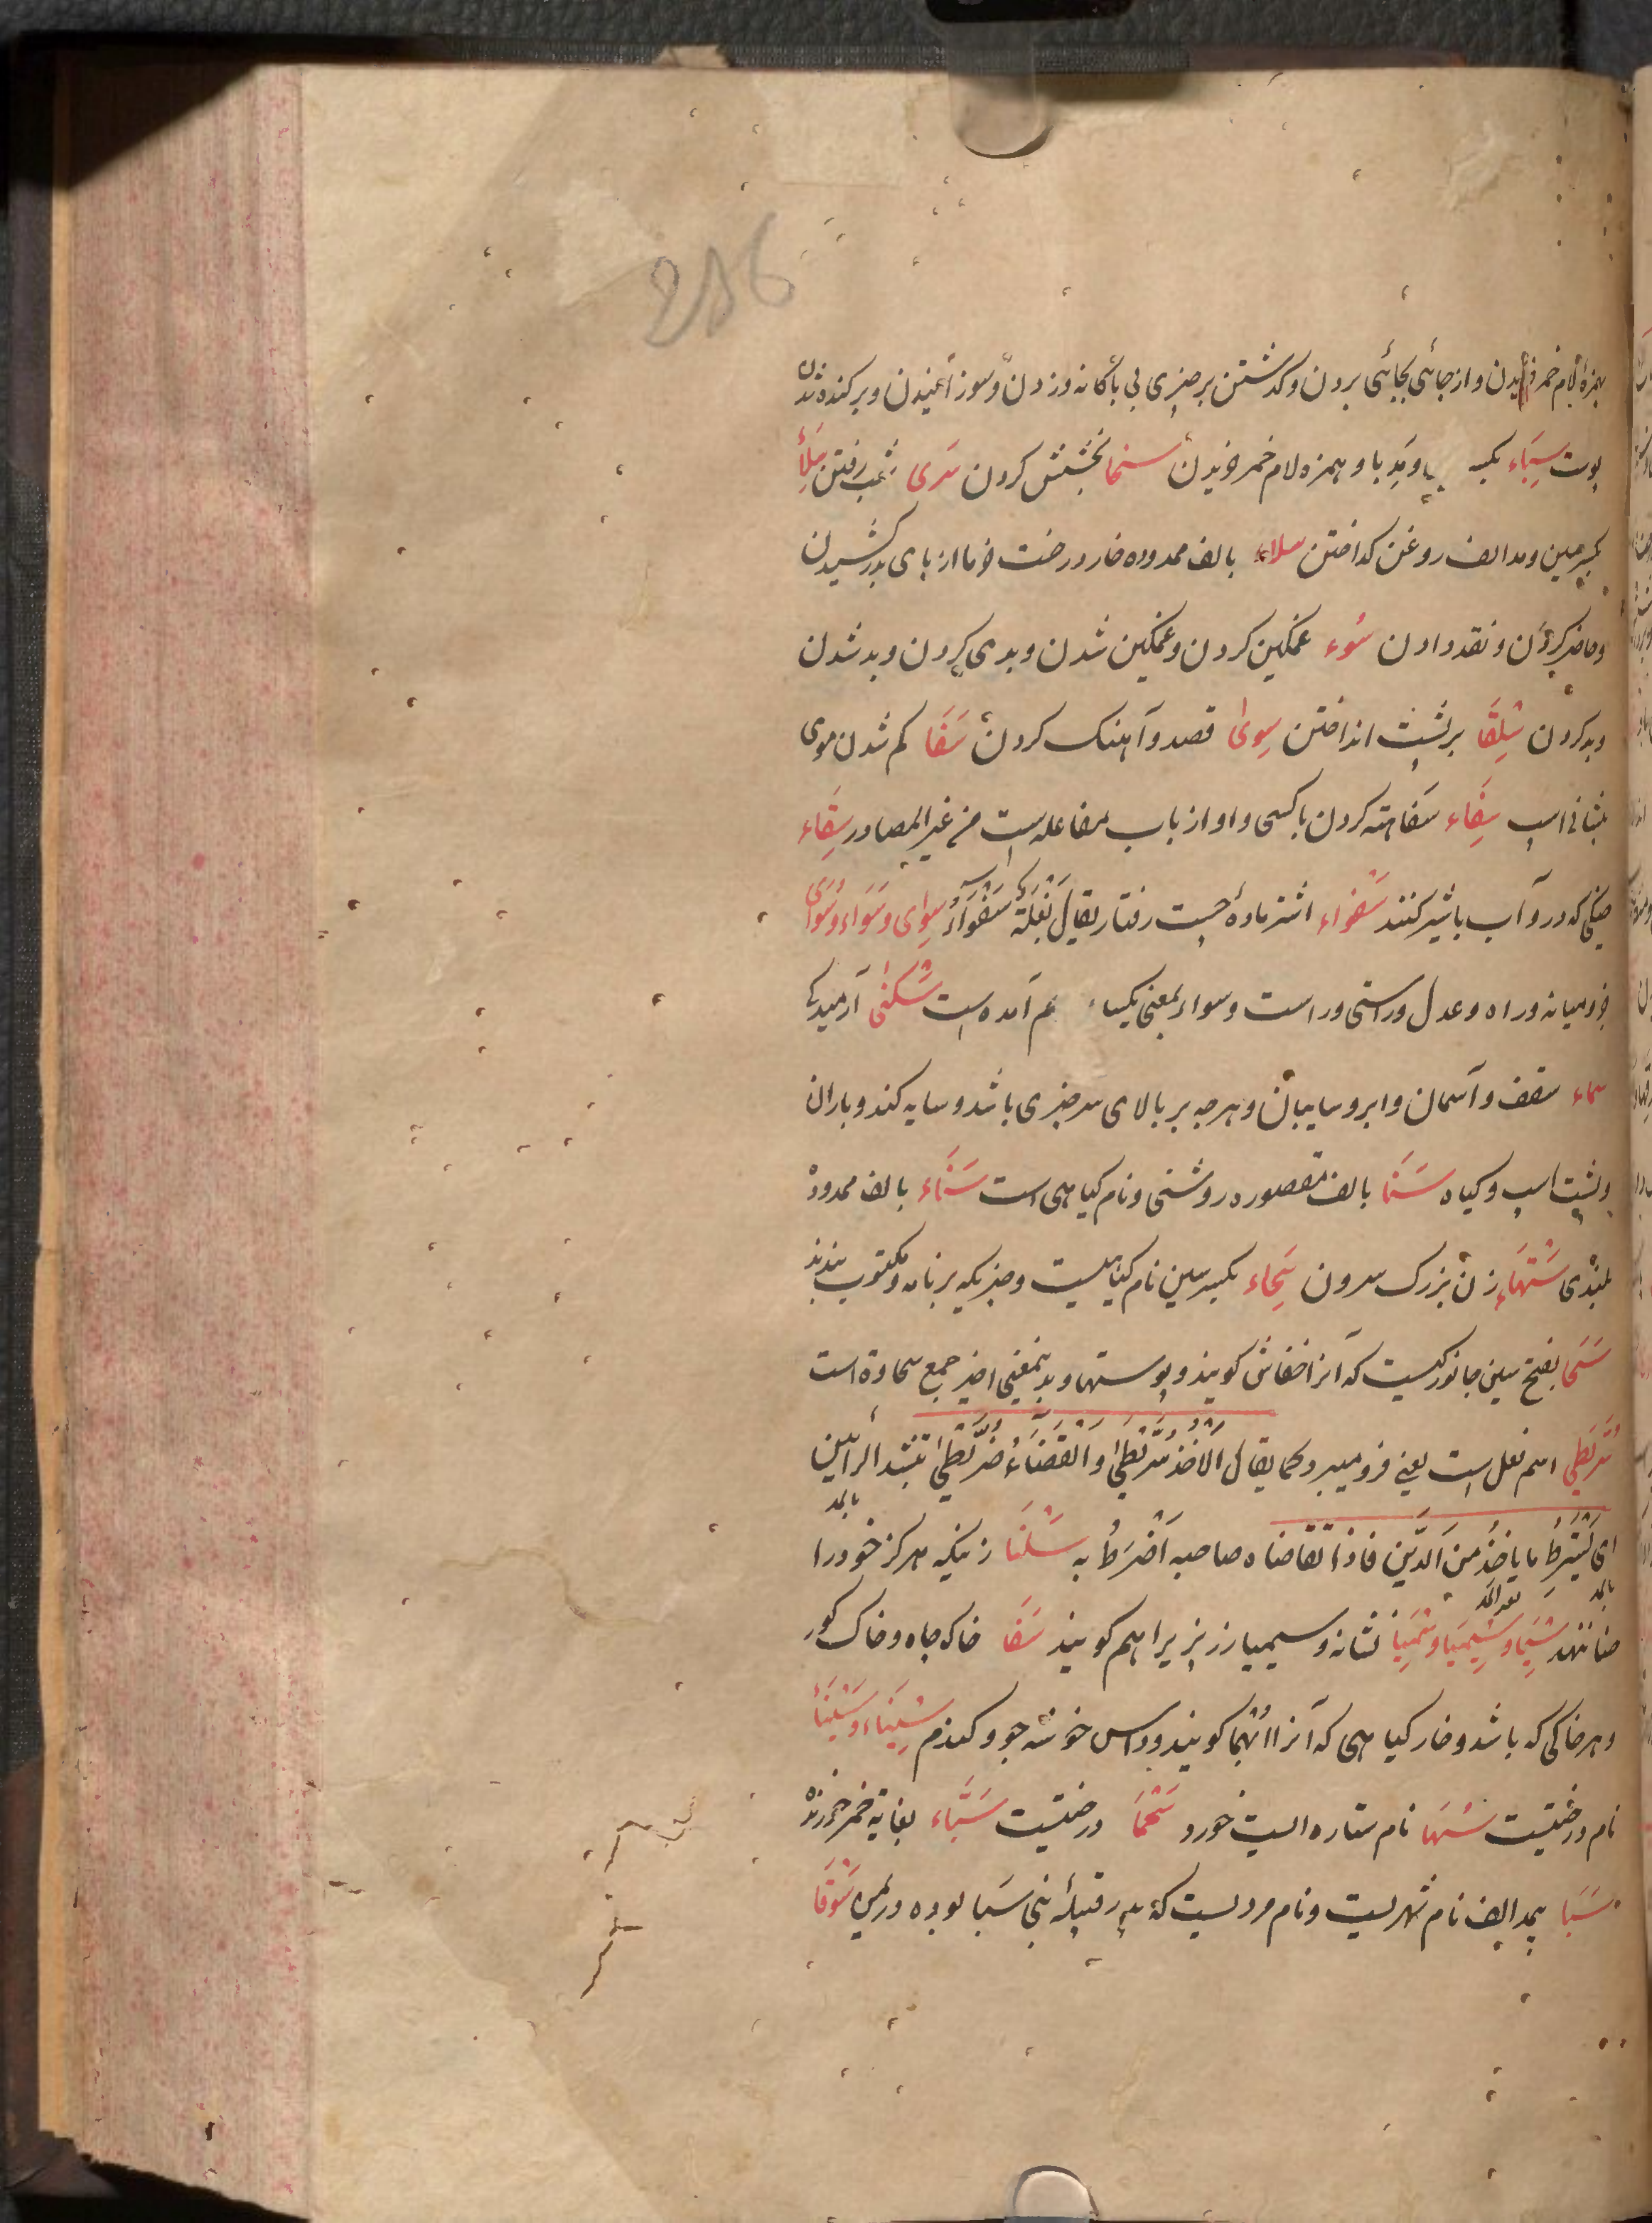 286
بهمزهٔ لام خمر خریدن و از جائی بجائی بردن و کذشتن بر چیزی بی باکانه و زدن و سوزانیدن و برکنده شدن
پوست سِبَاء بکسر با و مد با و همزه لام خمر خریدن سخا بخشش کردن سَری بشب رفتن سِلَأ
بکسر سین و مد الف روغن کداختن سلاء بالف ممدوده خار درخت خرما از پای بدر کشیدن
و حاضر کردن و نقد دادن سُوء غمکین کردن و غمکین شدن و بدی کردن و بد شدن
و بد کردن سِلِقَا بر پشت انداختن سِوی قصد و آهنک کردن سَفَا کم شدن موی
پیشانی اسپ سِفَاء سفاهت کردن با کسی و او از باب مفاعله است من غیر المصادر سِقَاء
خیکی که درو آب یا شیر کنند سَفْوَاء اشتر ماده چست رفتار یقال بَغْلَةٌ سَفْوَاءُ سِوای و سَوَاء و سُوَای
جز و میانه و راه و عدل و راستی و راست و سواء بمعنی یکسا هم آمده است سُکنی آرمیدکی
سماء سقف و آسمان و ابر و سایبان و هرچه بر بالای سر چیزی باشد و سایه کند و باران
و پشت اسپ و کیاه سَنَا بالف مقصوره روشنی و نام کیاهی است سَنَاء بالف ممدوده
بلندی سَتْهَاء زن بزرک سرون سِحَاء بکسر سین نام کیاهیست و چیزیکه بر نامه و مکتوب بندند
سَحَا بفتح سین جانوریست که آنرا خفاش کویند و پوستها و بدین معنی اخیر جمع سحاوة است
سُرَّیْطی اسم فعل است یعنی فرو میبرد کما یقال الاَخْذُ سُرَّیْطی وَالقَضَاءُ ضُرَّیْطی بتشدید الرائین
ای یَسْتَرِطُ ما یاخذُ مِنَ الدَّین فاذا تقاضاه صاحبه اَضْرَطَ به سَلْتَا زنیکه هرکز خود را بالمد
حنا ننهد سِیَما و سِیْمِیَا و سِیمِیَاء نشانه و سیمیا رزبز برا هم کویند سَفَا خاک چاه و خاک کور
و هر خاکی که باشد و خار کیاهی که آنرا بُهْمَا کویند و داس خوشه جو و کندم سِینَاء و سَیْنَاء
نام درختیست سُهَا نام ستاره ایست خورد سَحَمَا درختیست سَبَّاء بغایة خمر خورنده
سَبَا بمد الف نام شهریست و نام مردیست که پدر قبیلهٔ بنی سَبا بوده در یمن سَوْقَا